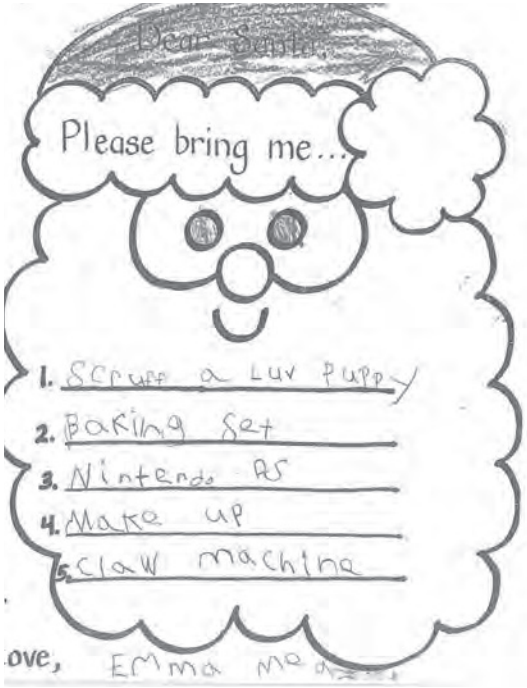 Dear Santa,
Please bring me...
1. Scruff a Luv Puppy
2. Baking Set
3. Nintendo DS
4. Make up
5. Claw machine
ove, Emma